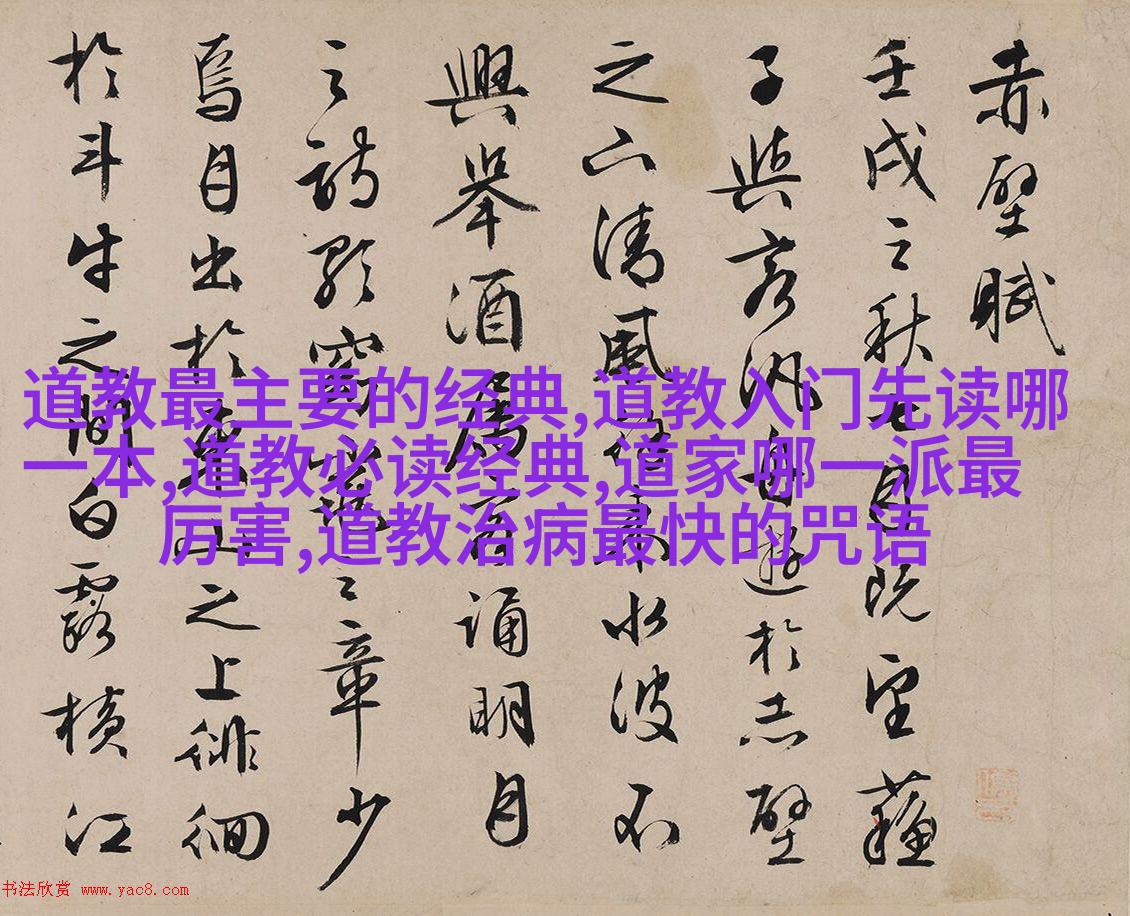 赤壁賦
壬戌之秋七月既望蘓
子與客汎舟遊於赤壁
之下清風徐来水波不
興舉酒屬客誦明月
之詩歌窈窕之章少
焉月出於東山之上徘徊
於斗牛之間白露横江
道教最主要的经典,道教入门先读哪
一本,道教必读经典,道家哪一派最
厉害,道教治病最快的咒语
书法欣赏 www.yac8.com